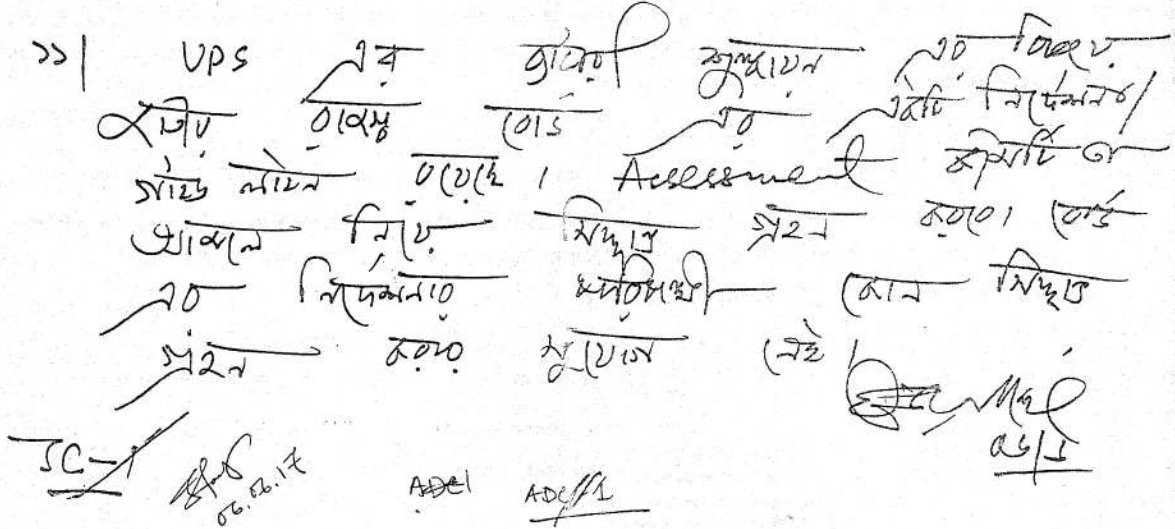 ১১| UPS এর স্থায়ী মূল্যায়ন এর বিষয়ে
জাতীয় রাজস্ব বোর্ড এর একটি নির্দেশনা/
গাইড লাইন রয়েছে। Assessment কমিটি তা
আমলে নিয়ে সিদ্ধান্ত গ্রহন করবে। বোর্ড
এর নির্দেশনার পরিপন্থী কোন সিদ্ধান্ত
গ্রহন করার সুযোগ নেই।
JC-1 06.06.17 ADC1 ADC/1